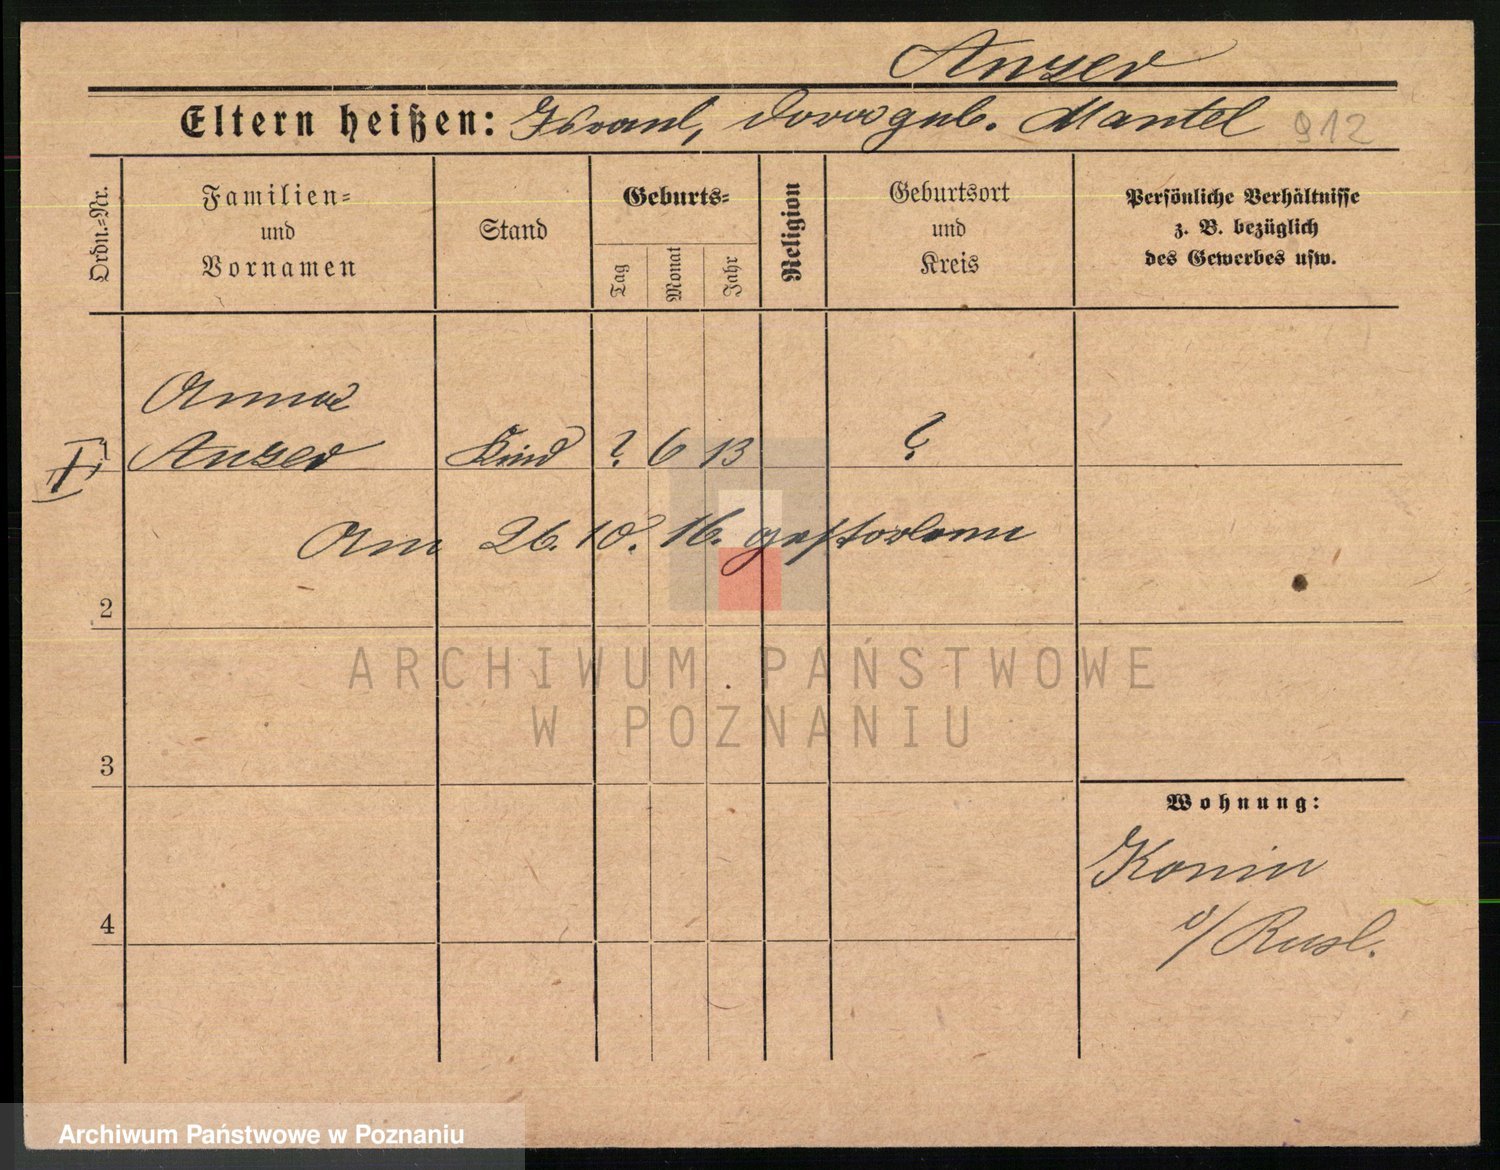 Anzer
Eltern heißen: Israel, Dora geb. Mantel 912
Ordn.-Nr.
Familien-
und
Vornamen
Stand
Geburts-
Tag
Monat
Jahr
Religion
Geburtsort
und
Kreis
Persönliche Verhältnisse
z. B. bezüglich
des Gewerbes usw.
Anna
1 Anzer Kind ? 6 13 ?
I
Am 26. 10. 16. gestorben
2
ARCHIWUM PAŃSTWOWE
W POZNANIU
3
Wohnung:
Konin
4
i/ Rusl.
Archiwum Państwowe w Poznaniu